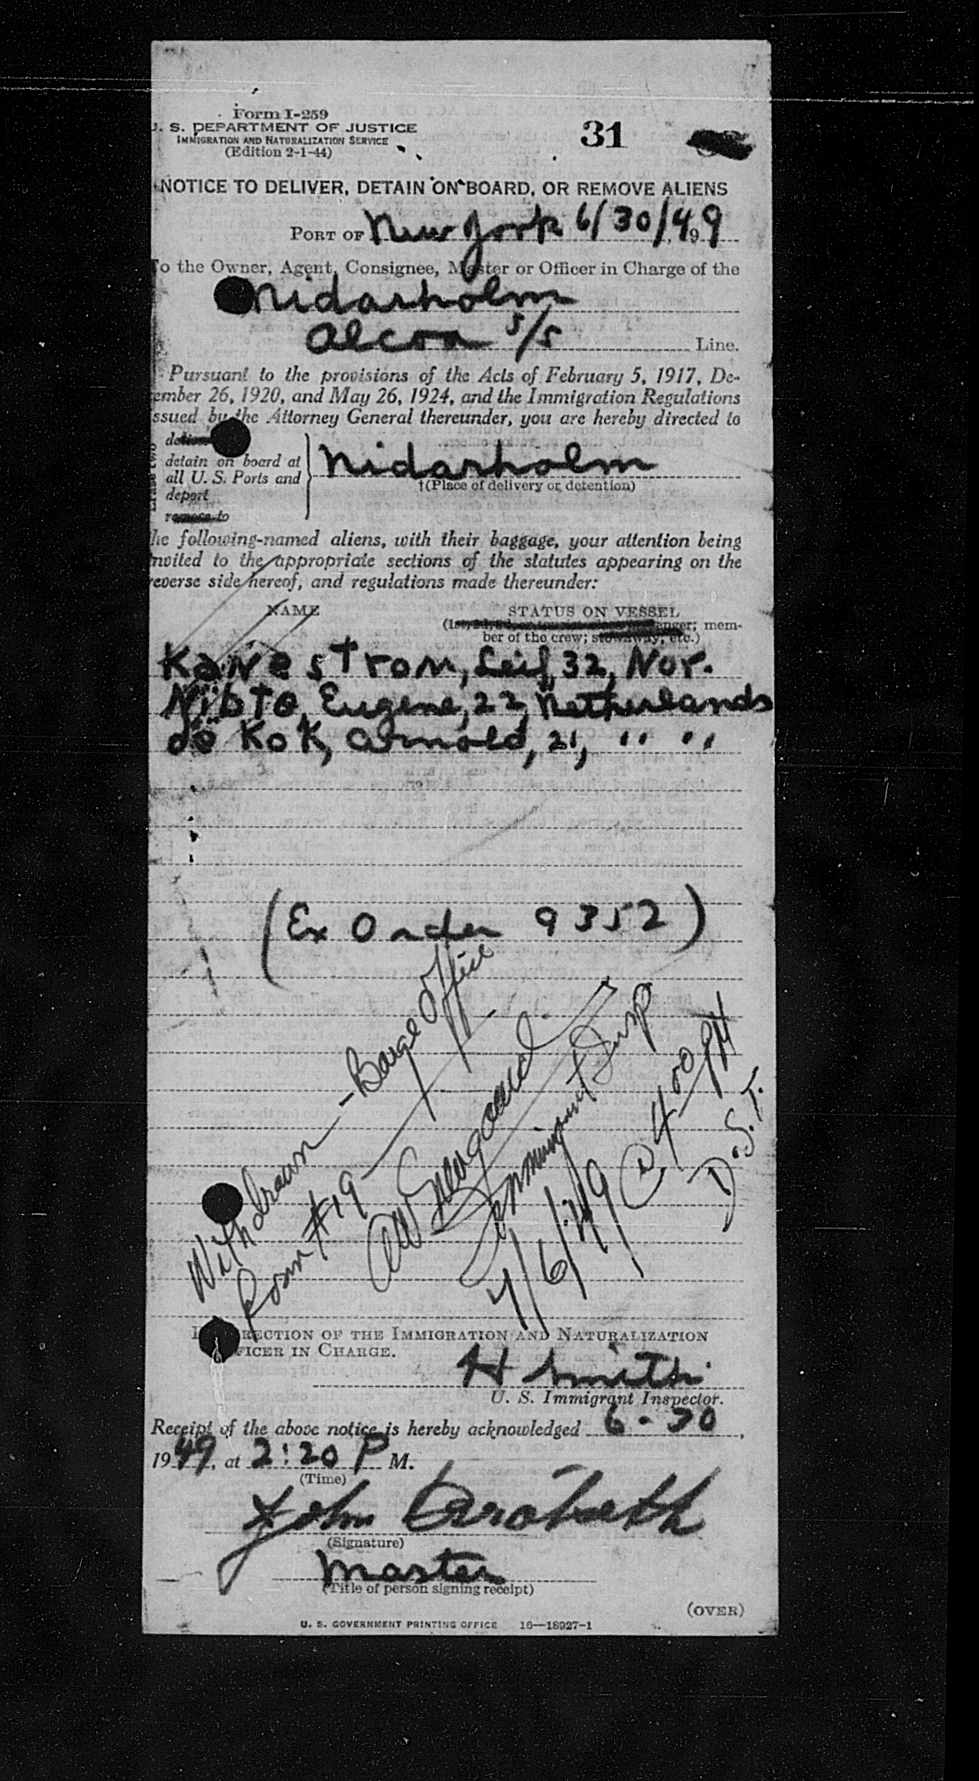 Form I-259
U. S. DEPARTMENT OF JUSTICE
IMMIGRATION AND NATURALIZATION SERVICE
(Edition 2-1-44)
31
NOTICE TO DELIVER, DETAIN ON BOARD, OR REMOVE ALIENS
PORT OF New York 6/30/49
To the Owner, Agent, Consignee, Master or Officer in Charge of the
Nidarholm
Alcoa S/S Line.
Pursuant to the provisions of the Acts of February 5, 1917, De-
ember 26, 1920, and May 26, 1924, and the Immigration Regulations
ssued by the Attorney General thereunder, you are hereby directed to
detain on board at
all U. S. Ports and
deport
remove to
Nidarholm
†(Place of delivery or detention)
he following-named aliens, with their baggage, your attention being
nvited to the appropriate sections of the statutes appearing on the
everse side hereof, and regulations made thereunder:
NAME STATUS ON VESSEL
mem-
ber of the crew; stowaway, etc.)
Kanestrom, Leif, 32, Nor.
Eugene, 22, Netherlands
de Kok, Arnold, 21, " "
(Ex Order 9352)
Withdrawn - Barge Office
Room #19
Immigrant Insp
7/6/49 @ 4:00 PM
D.S.T.
RECTION OF THE IMMIGRATION AND NATURALIZATION
FICER IN CHARGE.
H Smith
U. S. Immigrant Inspector.
Receipt of the above notice is hereby acknowledged 6-30,
1949, at 2:20 P M.
(Time)
John
(Signature)
Master
(Title of person signing receipt)
(OVER)
U. S. GOVERNMENT PRINTING OFFICE 16—18927-1